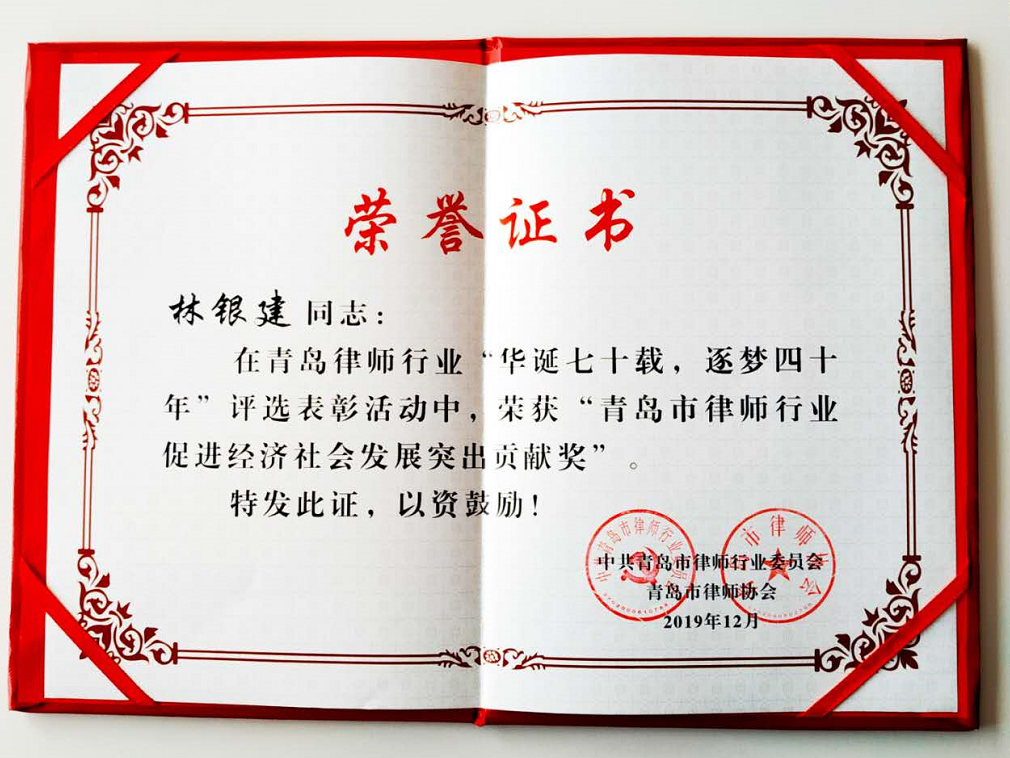 荣誉证书
林银建同志：
在青岛律师行业“华诞七十载，逐梦四十
年”评选表彰活动中，荣获“青岛市律师行业
促进经济社会发展突出贡献奖”。
特发此证，以资鼓励！
中共青岛市律师行业委员会
青岛市律师协会
2019年12月